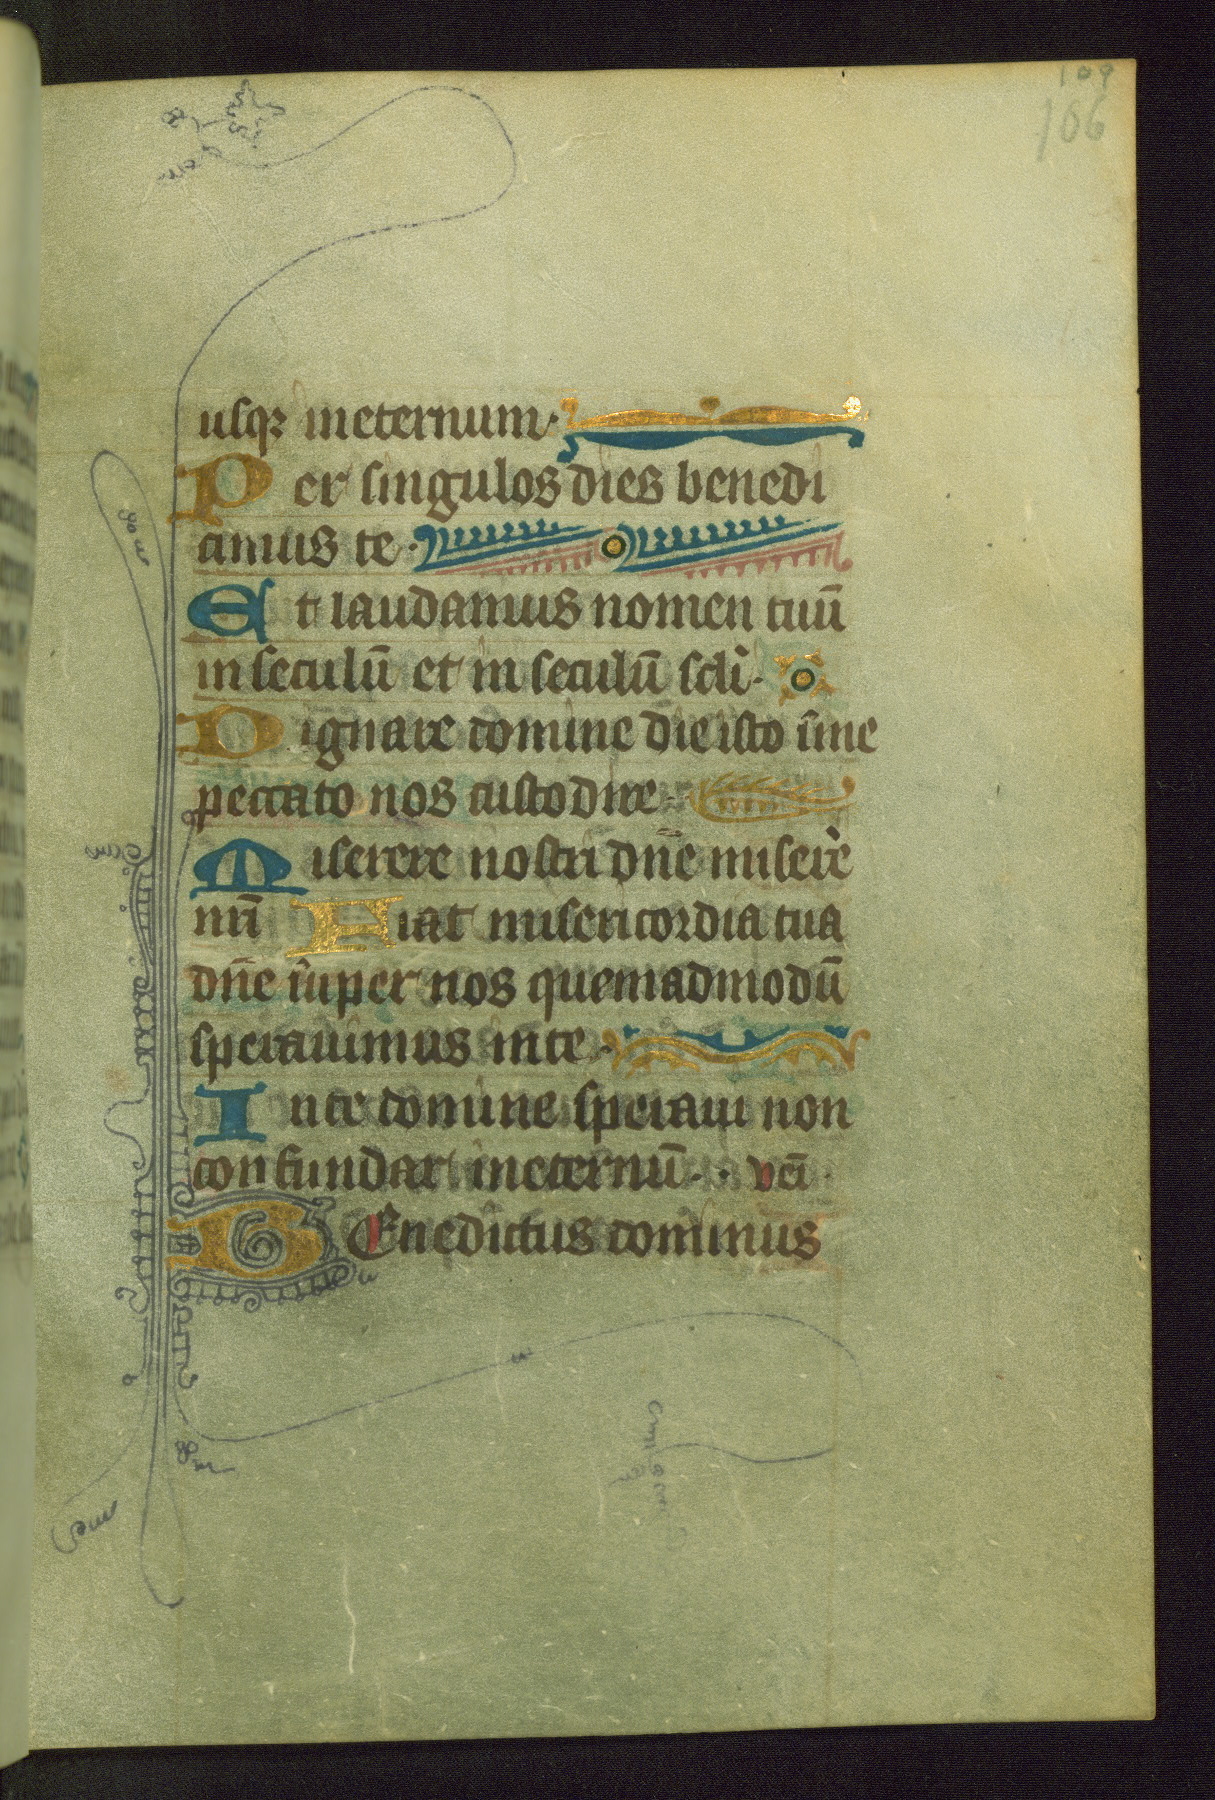 109
106
usqꝫ ineternum·
Per singulos dies benedi
camus te·
Et laudamus nomen tuū
in seculū et in seculū scłi·
Dignare domine die isto sine
peccato nos custodire·
Miserere nostri dn̄e miserere
nr̄i Fiat misericordia tua
dn̄e super nos quemadmodū
sperauimus in te·
In te domine speraui non
confundar ineternū·
Benedictus dominus